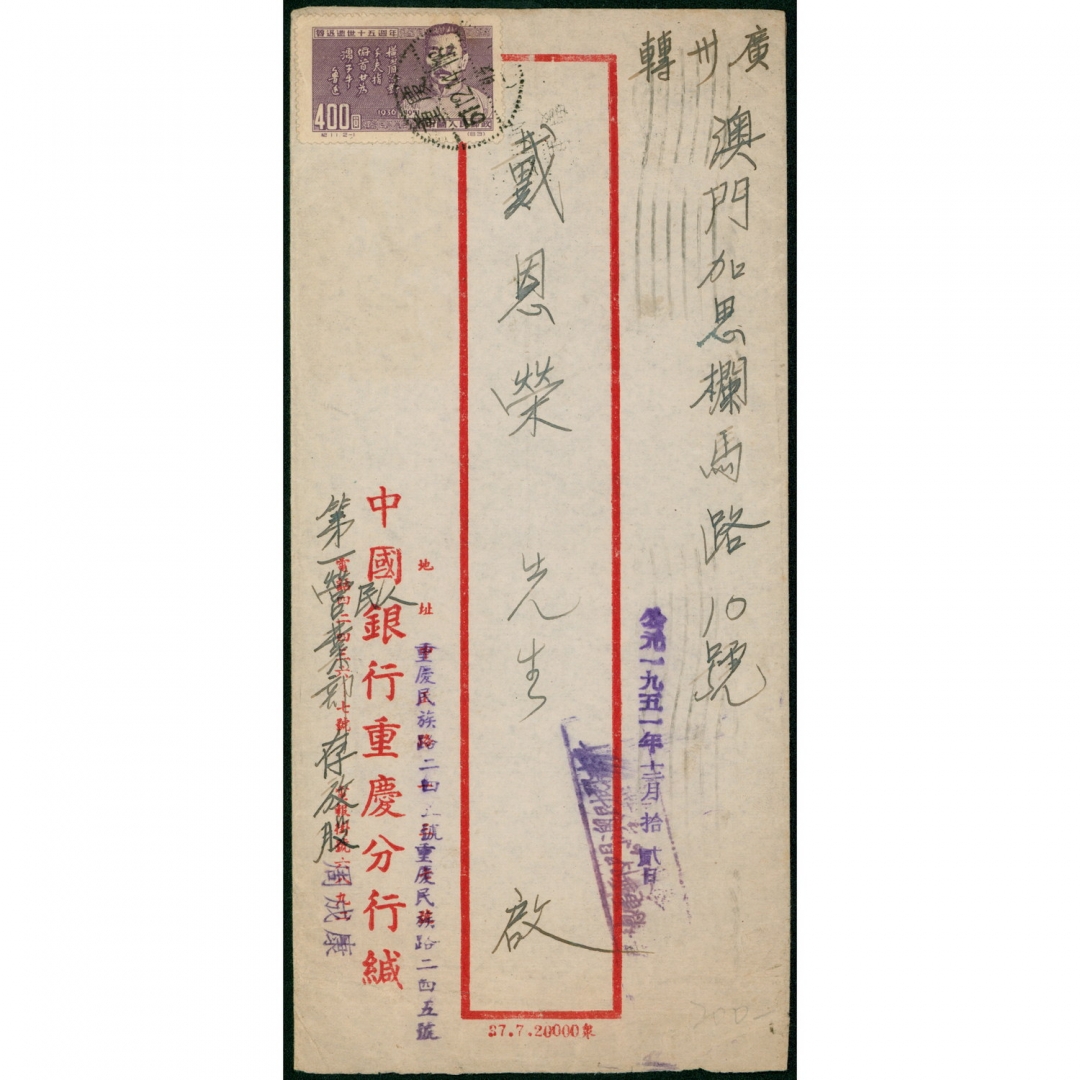 廣州轉
澳門加思欄馬路10號
公元一九五一年十二月拾貳日
戴恩榮先生 啟
地址
重慶民族路二四五號重慶民族路二四五號
中國銀行重慶分行緘
人民
第一營業部 存放股
周成康
魯迅逝世十五週年
橫眉
千夫指
俯首甘為
孺子牛
魯迅
400圓
37.7.20000